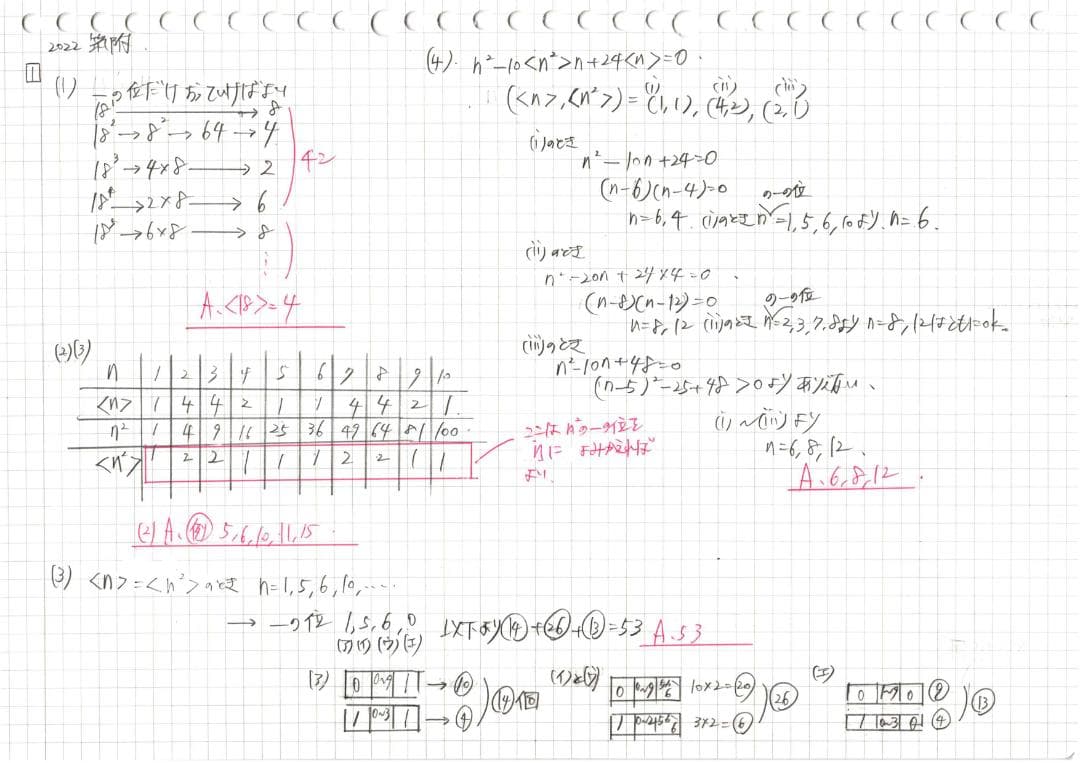 2022 筑附
1
(1) 一の位だけ追っていけばよい
18¹ → 8
18² → 8² → 64 → 4
18³ → 4×8 → 2
18⁴ → 2×8 → 6
18⁵ → 6×8 → 8
⋮
4コ
A. <18> = 4
(2)(3)
n 1 2 3 4 5 6 7 8 9 10
<n> 1 4 4 2 1 1 4 4 2 1
n² 1 4 9 16 25 36 49 64 81 100
<n²> 1 2 2 1 1 1 2 2 1 1
ここは n²の一の位を
nに よみかえれば
よい
(2) A. 例 5, 6, 10, 11, 15
(3) <n> = <n²> のとき n=1, 5, 6, 10, ……
→ 一の位 1, 5, 6, 0 以下より 14 + 26 + 13 = 53 A. 53
(ア)(イ)(ウ)(エ)
(ア) 0 0~9 1 → 10
1 0~3 1 → 4
14個
(イ)と(ウ) 0 0~9 5,6 10×2=20
1 0~2 5,6 3×2=6
26
(エ) 0 1~9 0 9
1 0~3 0 4
13
(4). n²-10<n²>n+24<n>=0.
(<n>, <n²>) = (i)(1, 1), (ii)(4, 2), (iii)(2, 1)
(i)のとき
n²-10n+24=0
(n-6)(n-4)=0
n=6, 4. (i)のとき nの一の位=1, 5, 6, 10より, n=6.
(ii)のとき
n²-20n+24×4=0
(n-8)(n-12)=0
n=8, 12 (ii)のとき nの一の位=2, 3, 7, 8より n=8, 12はともにok。
(iii)のとき
n²-10n+48=0
(n-5)²-25+48>0より ありえない、
(i)~(iii)より
n=6, 8, 12、
A. 6, 8, 12.